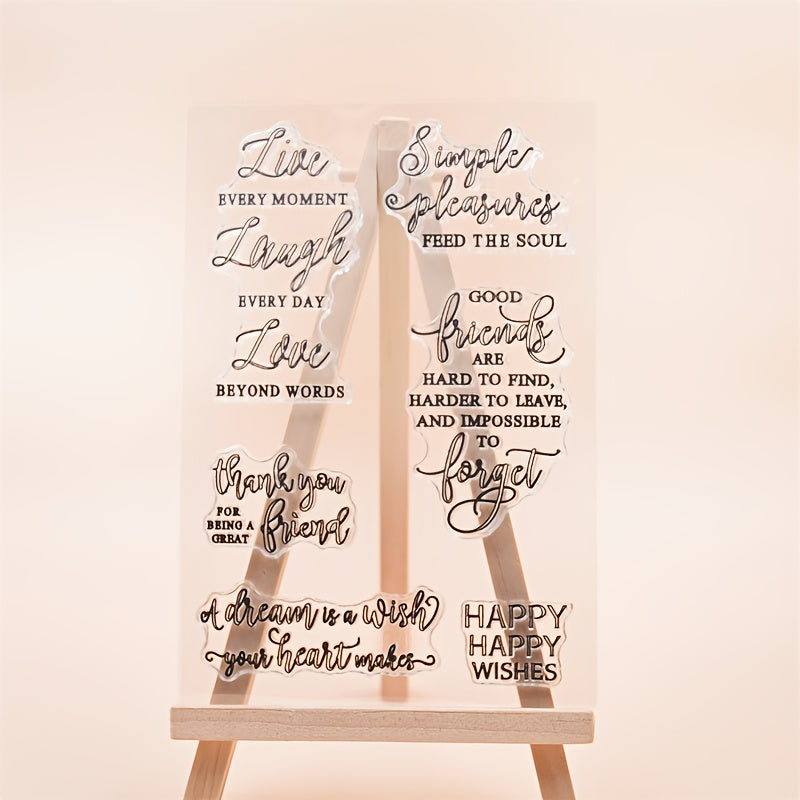 Live
EVERY MOMENT
Laugh
EVERY DAY
Love
BEYOND WORDS
Simple
pleasures
FEED THE SOUL
GOOD
friends
ARE
HARD TO FIND,
HARDER TO LEAVE,
AND IMPOSSIBLE
TO
forget
thank you
FOR
BEING A
GREAT
friend
A dream is a wish
your heart makes
HAPPY
HAPPY
WISHES